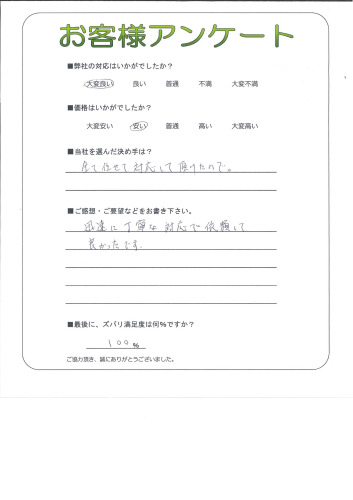 お客様アンケート
■弊社の対応はいかがでしたか？
大変良い 良い 普通 不満 大変不満
■価格はいかがでしたか？
大変安い 安い 普通 高い 大変高い
■当社を選んだ決め手は？
全て任せて対応して頂けたので。
■ご感想・ご要望などをお書き下さい。
迅速に丁寧な対応で依頼して
良かったです.
■最後に、ズバリ満足度は何％ですか？
100％
ご協力頂き、誠にありがとうございました。